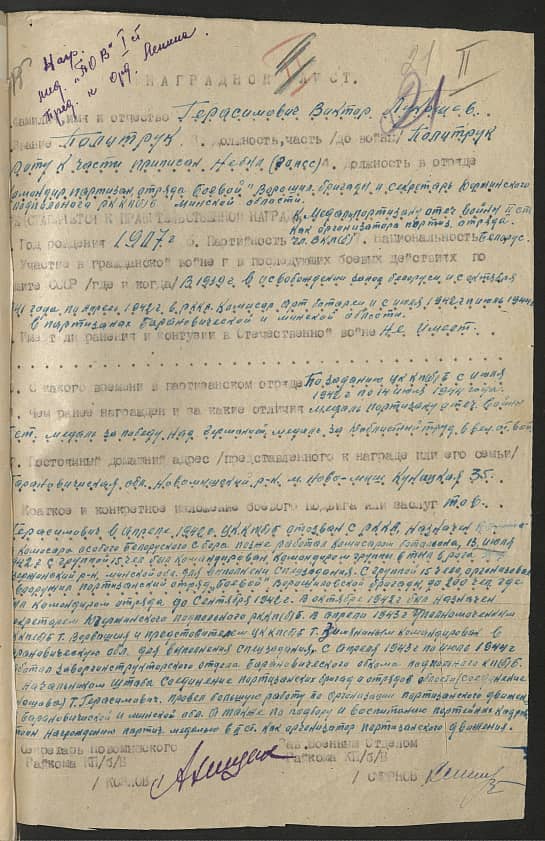 Нагр.
мед. "ПОВ" I ст
Пред. к Орд. Ленина.
21 II
НАГРАДНОЙ ЛИСТ.
Фамилия, имя и отчество Герасимович Виктор
Звание Политрук 3. Должность, часть /до войны/ Политрук
Роты К части приписан Не был (запас) 4. Должность в отряде
Командир партизан. отряда "Боевой" Ворошил. бригады и секретарь
подпольного РККП(б)Б Минской области.
ПРЕДСТАВЛЯЕТСЯ К ПРАВИТЕЛЬСТВЕННОЙ НАГРАДЕ К Медаль партизану отеч войны II ст.
как организатора партиз. отряда.
Год рождения 1907 г. 6. Партийность чл. ВКП(б) 7. Национальность Белорус.
Участие в гражданской войне и в последующих боевых действиях по
защите СССР /где и когда/ В 1939 г. в освобождении запад Белорусии с октября
41 года по апрель 1942 г. в РККА. Комиссар и с июля 1942 г по июль 1944
в партизанах Барановической и Минской области.
Имеет ли ранения и контузии в Отечественной войне Не имеет.
С какого времени в партизанском отряде По заданию ЦК КП(б)Б с июля
1942 г по 14 июля 1944 года.
Чем ранее награжден и за какие отличия Медаль партизану отеч. войны
I ст. медаль за победу над Германией, медаль за доблестный труд в вел. от. войне
Постоянный домашний адрес /представленного к награде или его семьи/
Барановичская обл. Новомышский р-н м. Ново-мыш 35.
Краткое и конкретное изложение боевого подвига или заслуг тов.
Герасимович в апреле 1942 г. ЦК КП(б)Б отозван с РККА, назначен
комисара особого белорусского сбора позже работал комисаром батальона, 13 июля
1942 г с группой 15 чел был командирован командиром группы в тыл врага
Дзержинский р-н, минской обл. для выполнения спецзадания. С группой 15 чел, организовал
вооружил партизанский отряд "Боевой" Ворошиловской бригады до 200 чел где
был командиром отряда до сентября 1942 г. В октябре 1942 г был назначен
секретарем подпольного РККП(б)Б. В апреле 1943 г уполномоченным
ЦККП(б)Б т. и представителем ЦК КП(б)Б т. командирован в
Барановическую обл. для выполнения спецзадания, с апреля 1943 г по июль 1944 г
работал зав. оргинструкторского отдела Барановического обкома подпольного КП(б)Б.
Начальником штаба Соединение партизанских бригад и отрядов области (соединение
) т. Герасимович. Провел большую работу по организации партизанского движения
Барановичской и минской обл. А также по подбору и воспитанию партейных кадров,
Награждению партиз. медалью II ст как организатор партизанского движения.
Секретарь Новомышского Зав. Военным Отделом
Райкома КП/б/Б Райкома КП/б/Б
/ КОРЛОВ / / СМИРНОВ /